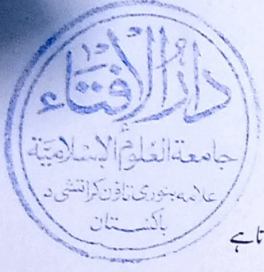 دارالافتاء
جامعة العلوم الإسلامية
علامه بنوری تاؤن کراتشی ۵
باكستان
تا ہے